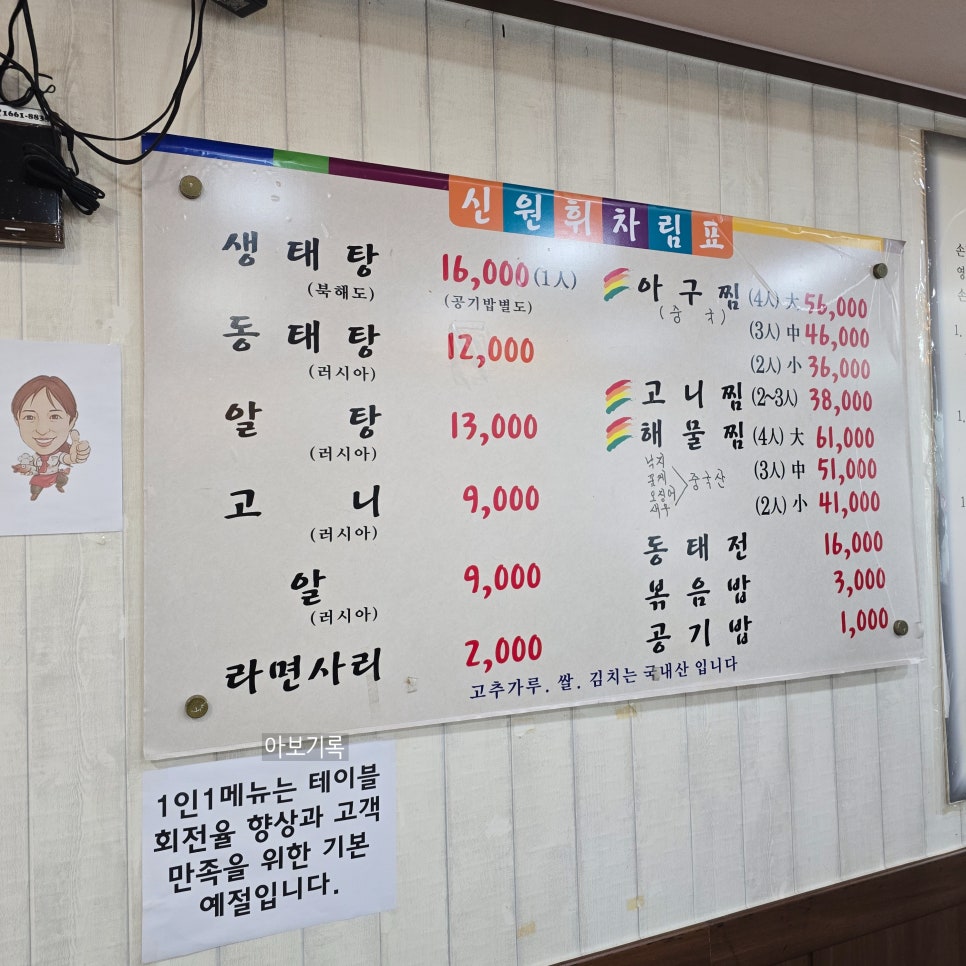 신원휘차림표
생태탕 16,000 (1人)
(북해도) (공기밥별도)
동태탕 12,000
(러시아)
알탕 13,000
(러시아)
고니 9,000
(러시아)
알 9,000
(러시아)
라면사리 2,000
아구찜 (4人) 大 56,000
(중국) (3人) 中 46,000
(2人) 小 36,000
고니찜 (2~3人) 38,000
해물찜 (4人) 大 61,000
낙지
꽃게
오징어
새우
중국산
(3人) 中 51,000
(2人) 小 41,000
동태전 16,000
볶음밥 3,000
공기밥 1,000
고추가루. 쌀. 김치는 국내산 입니다
아보기록
1인1메뉴는 테이블
회전율 향상과 고객
만족을 위한 기본
예절입니다.